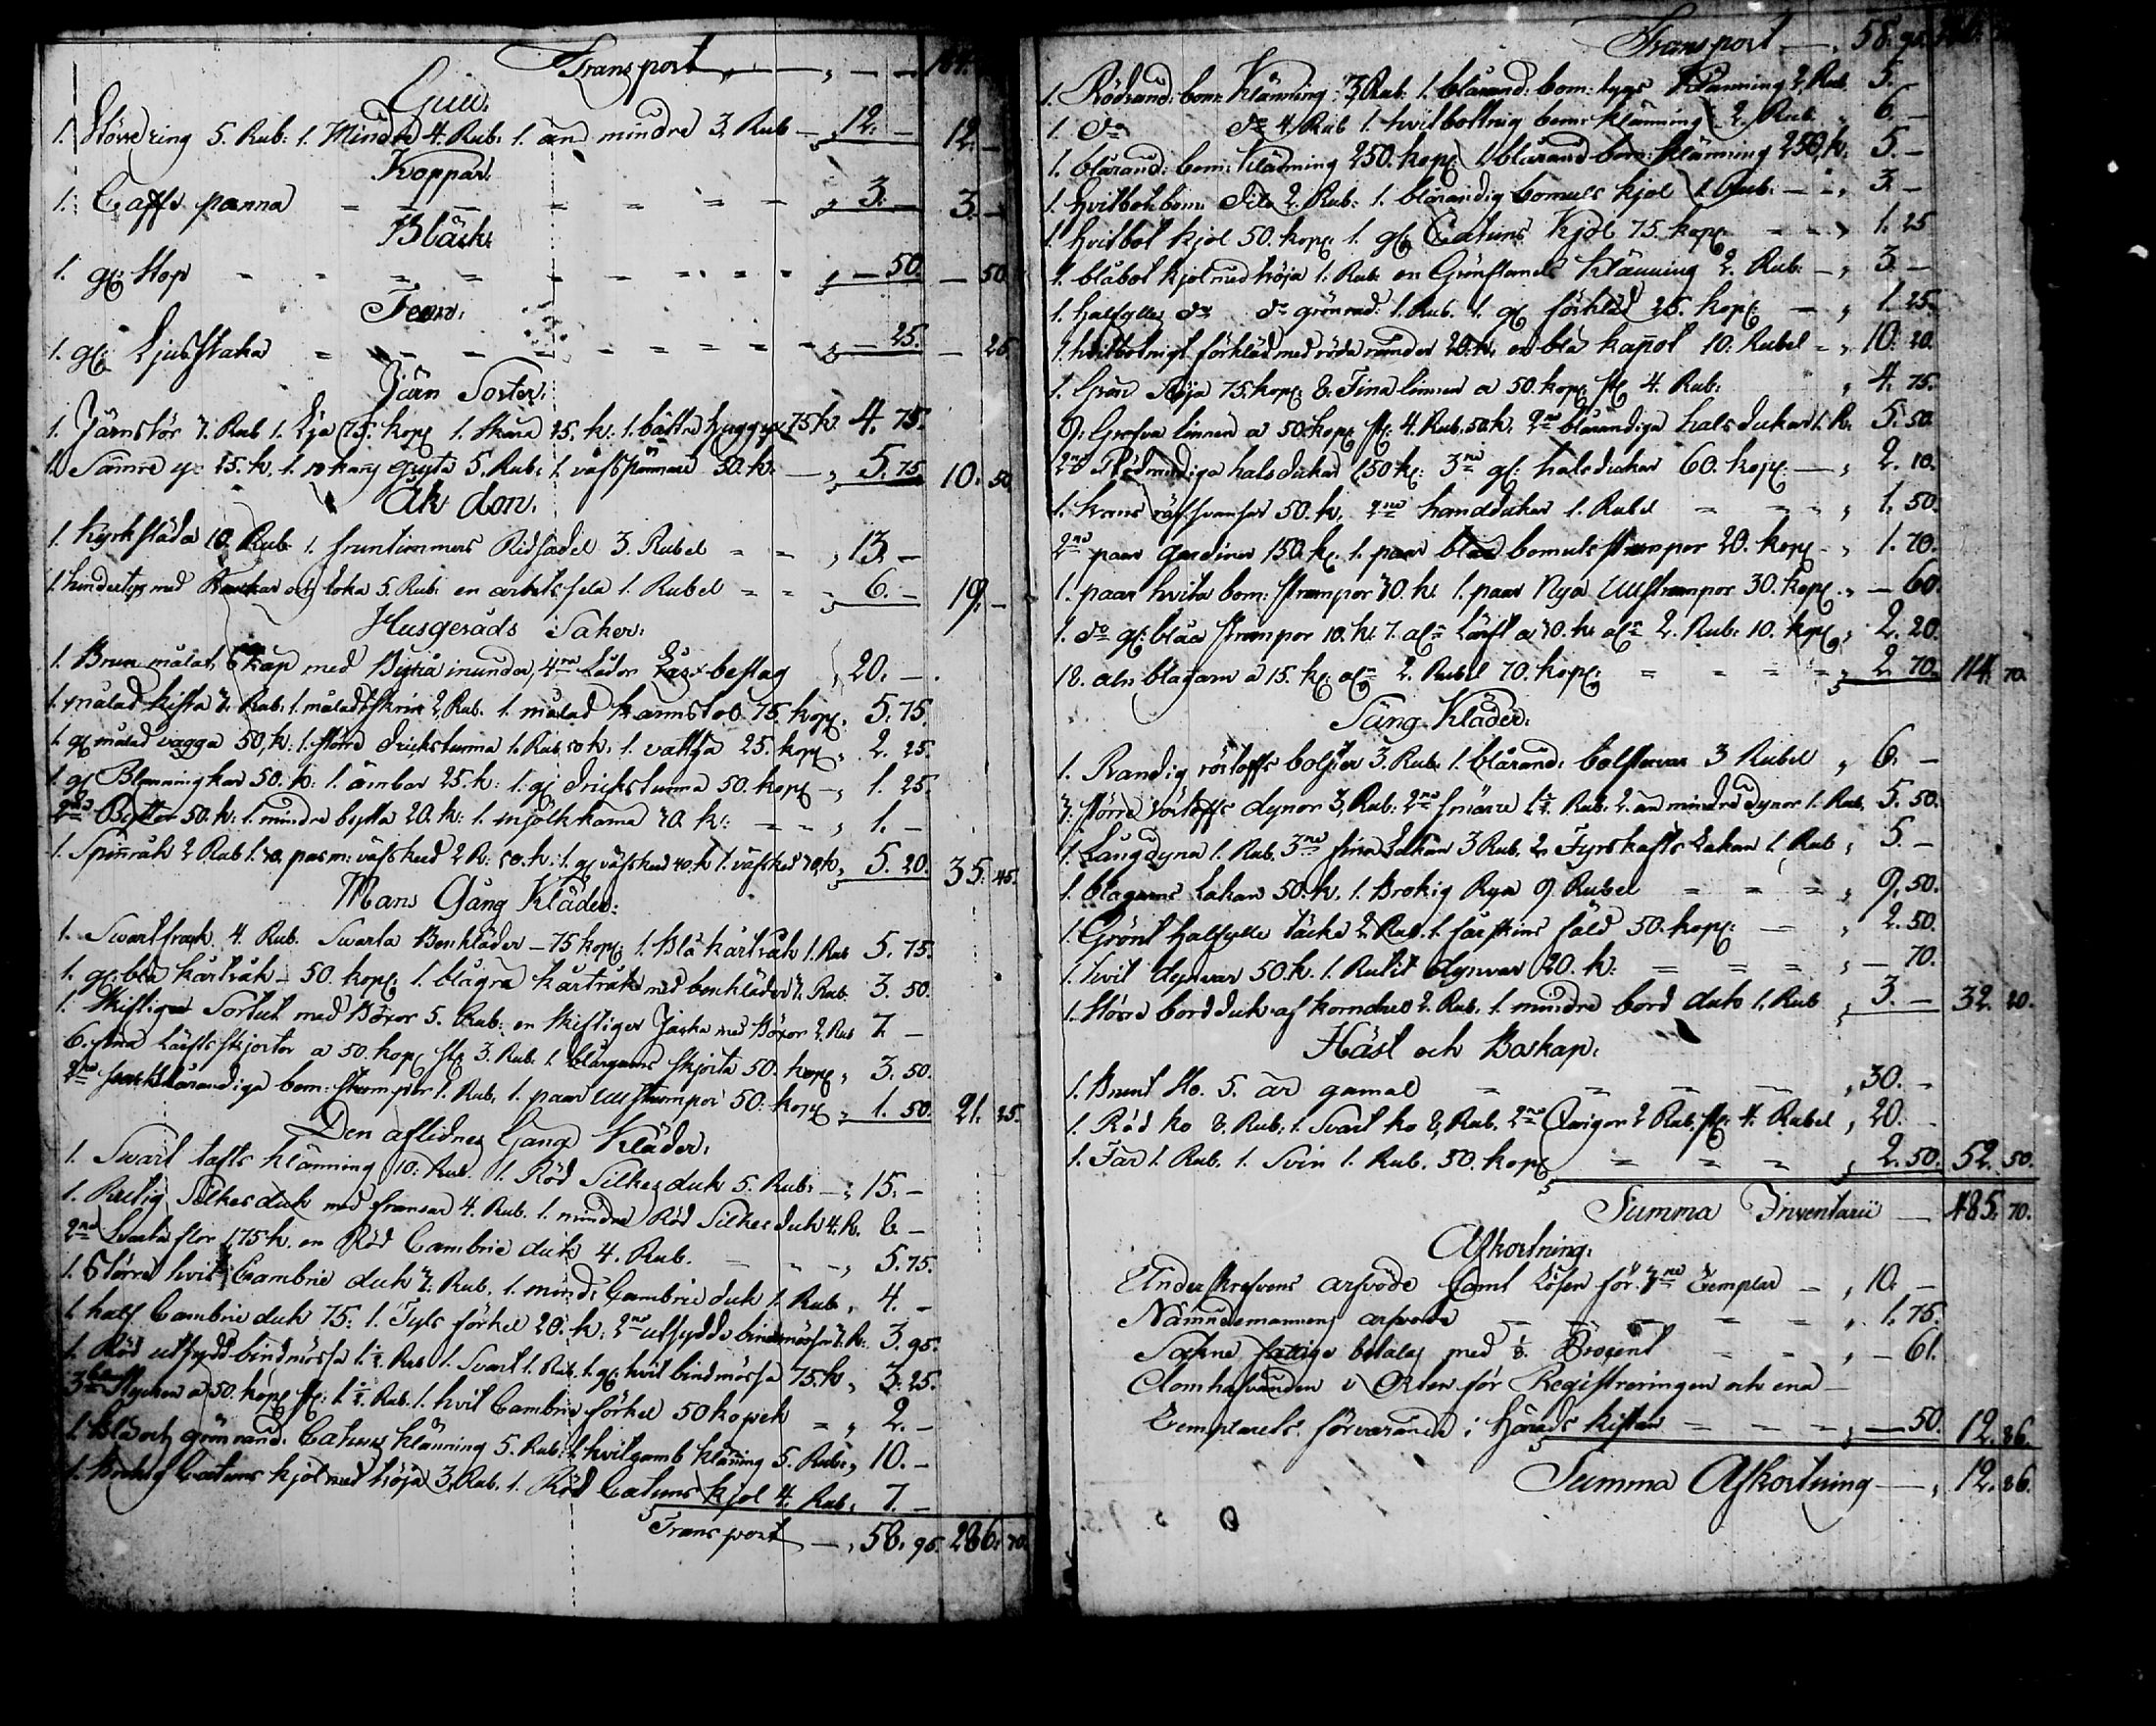 Transport
Gull.
1. Större ring 5. Rub: 1. Mindre 4. Rub: 1. än mindre 3. Rub 12. — 12. —
Koppar.
1. Caffe panna 3. — 3. —
Bläck.
1. gl: Stop — 50. — 50.
Tenn.
1. gl: Ljusstaka — 25. — 25
Järn Sorter:
1. Järnstör 3. Rub 1. Lja 75. kop: 1. skära 25. k: 1. bättre huggyx 75 k. 4. 75.
1. Sämre yx 25. k. 1. 10 karg gryta 5. Rub: 1. väfspännare 50. k: 5. 75. 10. 50.
Åk don.
1. Kyrksläda 10. Rub 1. fruntimmers Ridsadel 3. Rubel 13. —
1. med och loka 5. Rub: en arbetssela 1. Rubel 6. — 19. —
Husgeråds Saker:
1. Brun målat Skåp med Byrå inunder, 4ra Lådor Lås o beslag 20. —
1. målad kista 3. Rub. 1. måladt skrin 2. Rub. 1. målad karmstol 75. kop: 5. 75.
1. gl målad vagga 50, k: 1. större drickstunna 1. Rub 50 k: 1. vattså 25. kop 2. 25.
1. gl Blanningkar 50. k: 1. ämbar 25. k: 1. gl drickstunna 50. kop 1. 25.
2ne Byttor 50. k: 1. mindre bytta 20. k: 1. mjölkkanna 30. k: 1. —
1. Spinråk 2 Rub 1. 70. pasm: väfsked 2 R: 50. k: 1. gl väfsked 40. k 1. väfsked 30, k 5. 20. 35. 45.
Mans Gång Kläder:
1. Svart frack 4. Rub. Svarta Benkläder — 75 kop: 1. blå kartråk 1. Rub 5. 75.
1. gl: blå kårtråk — 50. kop: 1. blågrå kårtråk med benkläder 3. Rub. 3. 50.
1. Skiftiger Sortut med Böxor 5. Rub: en skiftiger Jacka med Böxor 2. Rub 7. —
6. fina Lärfts skjortor a 50. kop st: 3. Rub. 1. blångarns skjorta 50. kop 3. 50.
2ne blårandiga bom: strumpor 1. Rub. 1. paar ull strumpor 50. kop 1. 50. 21. 25.
Den aflidnes Gång Kläder:
1. Svart tafts klänning 10. Rub. 1. Röd Silkesduk 5. Rub: 15. —
1. Rutig Silkesduk med fransar 4. Rub. 1. mindre Röd Silkesduk 4. R. 8. —
2ne Svarta flor 175 k. en Röd Cambric duk 4. Rub. 5. 75.
1. Större hvit Cambric duk 3. Rub. 1. mind: Cambric duk 1. Rub. 4. —
1. half Cambric duk 75: 1. Tyls förkel 20. k: 2ne utsydde bindmössor 3. R: 3. 95.
1. Röd utsydd bindmössa 1½ Rub 1. Svart 1. Rub. 1. gl: hvit bindmössa 75. k 3. 25.
3ne Stycken a 50. kop st: 1½ Rub. 1. hvit Cambric förkel 50 kopek 2. —
1. blå och grönrand: Catuns klänning 5. Rub: 1. hvit gamb klänning 5. Rub: 10. —
1. Brokig Catuns kjol med tröja 3. Rub. 1. Röd Catuns kjol 4. Rub: 7. —
Transport 58. 95. 286. 70.
Transport 58. 95
1. Rödrand: bom: klänning 3. Rub: 1. blårand: bom: tygs klänning 2. Rub. 5. —
1. do do 4. Rub 1. hvitbottnig bom: klänning 2. Rub. 6. —
1. blårand: bom: klänning 250. kop: 1. blårand bom: klänning 250, k: 5. —
1. hvitbot: bom: dito 2. Rub: 1. blårandig bomuls kjol 1. Rub: 3. —
1. hvitbot kjol 50. kop: 1. gl: Catuns kjol 75. kop: 1. 25
1. blåbot kjol med tröja 1. Rub: en Grönflanels klänning 2. Rub: 3. —
1. halfylles do do grönrand: 1. Rub. 1. gl förkläd 25. kop: 1. 25.
1. hvitbotnigt förkläd med röda ränder 20. k. en blå kapot 10. Rubel 10. 20.
1. Grön Tröja 75. kop: 8. Fina linnen a 50. kop: st: 4. Rub: 4. 75.
9. Grofva linnen a 50. kop: st: 4. Rub. 50. k: 2ne blårandiga halsdukar 1. R. 5. 50.
2ne Rödrandiga halsdukar 150 k: 3ne gl: halsdukar 60. kop: 2. 10.
1. 50. k. 2ne handdukar 1. Rubel 1. 50.
2ne paar gardiner 150. k. 1. paar blåa bomuls strumpor 20. kop 1. 70.
1. paar hvita bom: strumpor 30. k. 1. paar Nya Ullstrumpor 30. kop: — 60.
1. do gl: blåa strumpor 10. k: 7. aln Lärft a 30. k: aln 2. Rub: 10. kop: 2. 20.
18. aln blagarn a 15. k: aln 2. Rubel 70. kop: 2. 70. 114. 70.
Säng Kläder:
1. Randig röitofts bolster 3. Rub: 1. blårand: bolstervar 3 Rubel 6. —
3: större röitofts dynor 3, Rub: 2ne smärre 1½ Rub: 2. än mindre dynor 1. Rub. 5. 50.
1. Långdyna 1. Rub. 3ne fina Lakan 3 Rub. 2 Fyrskafts Lakan 1. Rub 5. —
1. blagarns Lakan 50. k. 1. Brokig Rya 9 Rubel 9. 50.
1. Grönt halfylle täcke 2. Rub. 1. fårskins fäld 50. kop: 2. 50.
1. hvit dynvar 50. k. 1. Rutit dynvar 20. k: — 70.
1. Större bord duk af korndräll 2. Rub. 1. mindre bord duk 1. Rub 3. — 32. 20.
Häst och Boskap:
1. Brunt Sto. 5. år gamal 30. —
1. Röd ko 8. Rub: 1. Svart ko 8, Rub. 2ne Qvigor 2 Rub. st: 4. Rubel 20. —
1. Får 1. Rub. 1. Svin 1. Rub. 50. kop 2. 50. 52. 50.
Summa Inventarii 485. 70.
Afkortning:
Underskrefvens arfvode samt Lösen för 3ne Exemplar 10. —
Nämndemannens arfvode 1. 75.
Sockne fattige betalas med ⅛ Procent — 61.
Domhafvanden i Orten för Registreringen och ena
Exemplarets förvarande i Härads kistan — 50. 12. 86.
Summa Afkortning 12. 86.